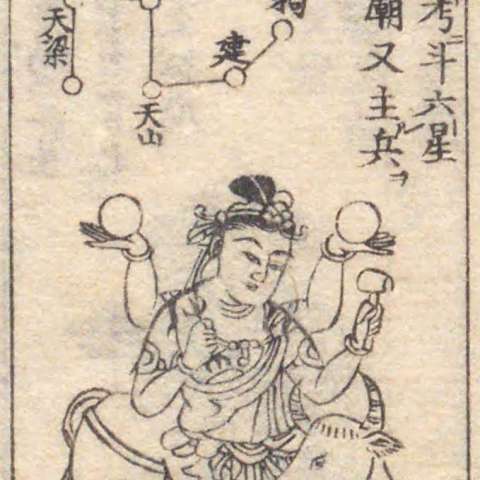 考斗六星
廟又主兵、ヲ
建
天山
天梁